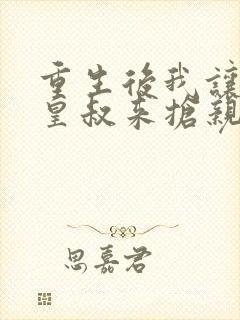 重生後我讓
皇叔来搶親
思嘉君